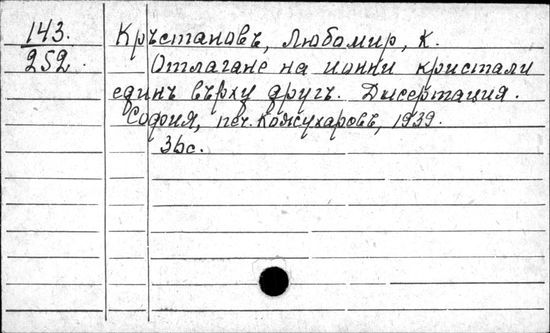 143.
252.
Кръстановъ, Любомир, К.
Отлагане на ионни кристали
единъ върху другъ. Дисертация.
София, печ. Кожухаровъ, 1939.
36с.